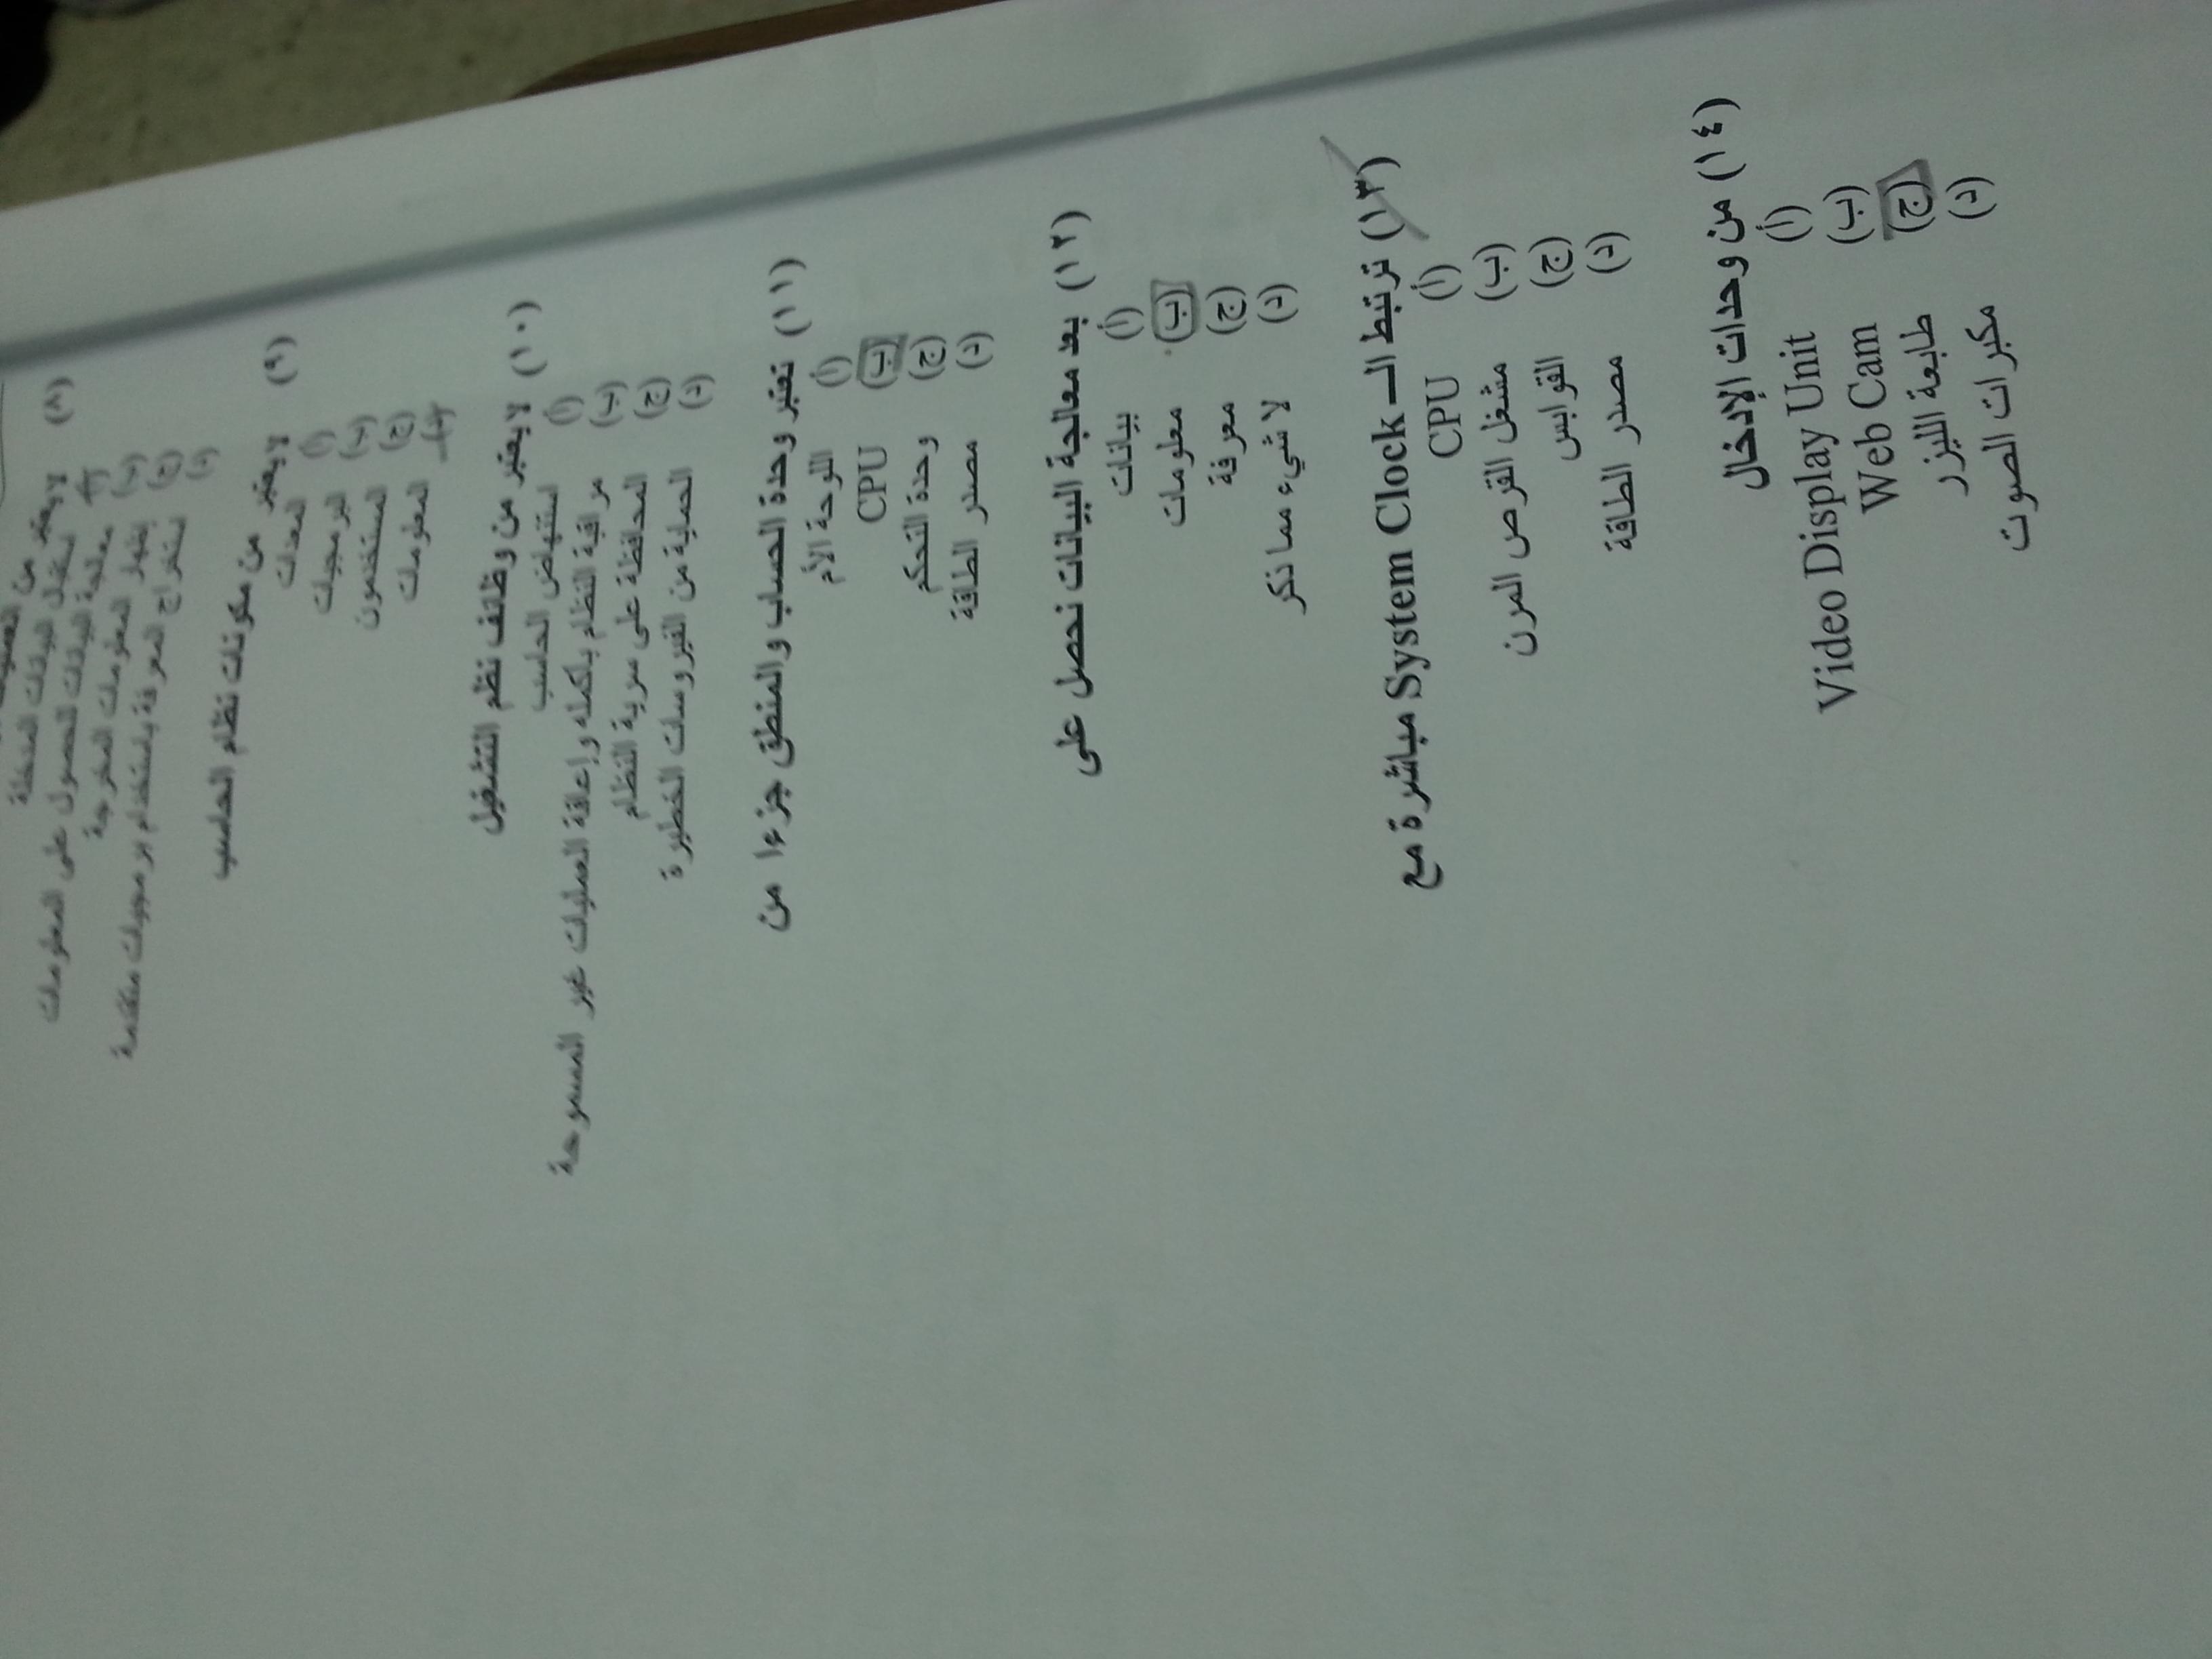 (٨) لا يعتبر من العمليات
(أ) استقبال البيانات المدخلة
(ب) معالجة البيانات للحصول على المعلومات
(ج) إظهار المعلومات المخرجة
(د) استخراج المعرفة باستخدام برمجيات متقدمة
(٩) لا يعتبر من مكونات نظام الحاسب
(أ) المعدات
(ب) البرمجيات
(ج) المستخدمون
(د) المعلومات
(١٠) لا يعتبر من وظائف نظم التشغيل
(أ) استنهاض الحاسب
(ب) مراقبة النظام بأكمله وإعاقة العمليات غير المسموحة
(ج) المحافظة على سرية النظام
(د) الحماية من الفيروسات الخطيرة
(١١) تعتبر وحدة الحساب والمنطق جزءا من
(أ) اللوحة الأم
(ب) CPU
(ج) وحدة التحكم
(د) مصدر الطاقة
(١٢) بعد معالجة البيانات نحصل على
(أ) بيانات
(ب) معلومات
(ج) معرفة
(د) لا شيء مما ذكر
(١٣) ترتبط الـ System Clock مباشرة مع
(أ) CPU
(ب) مشغل القرص المرن
(ج) القوابس
(د) مصدر الطاقة
(١٤) من وحدات الإدخال
(أ) Video Display Unit
(ب) Web Cam
(ج) طابعة الليزر
(د) مكبرات الصوت